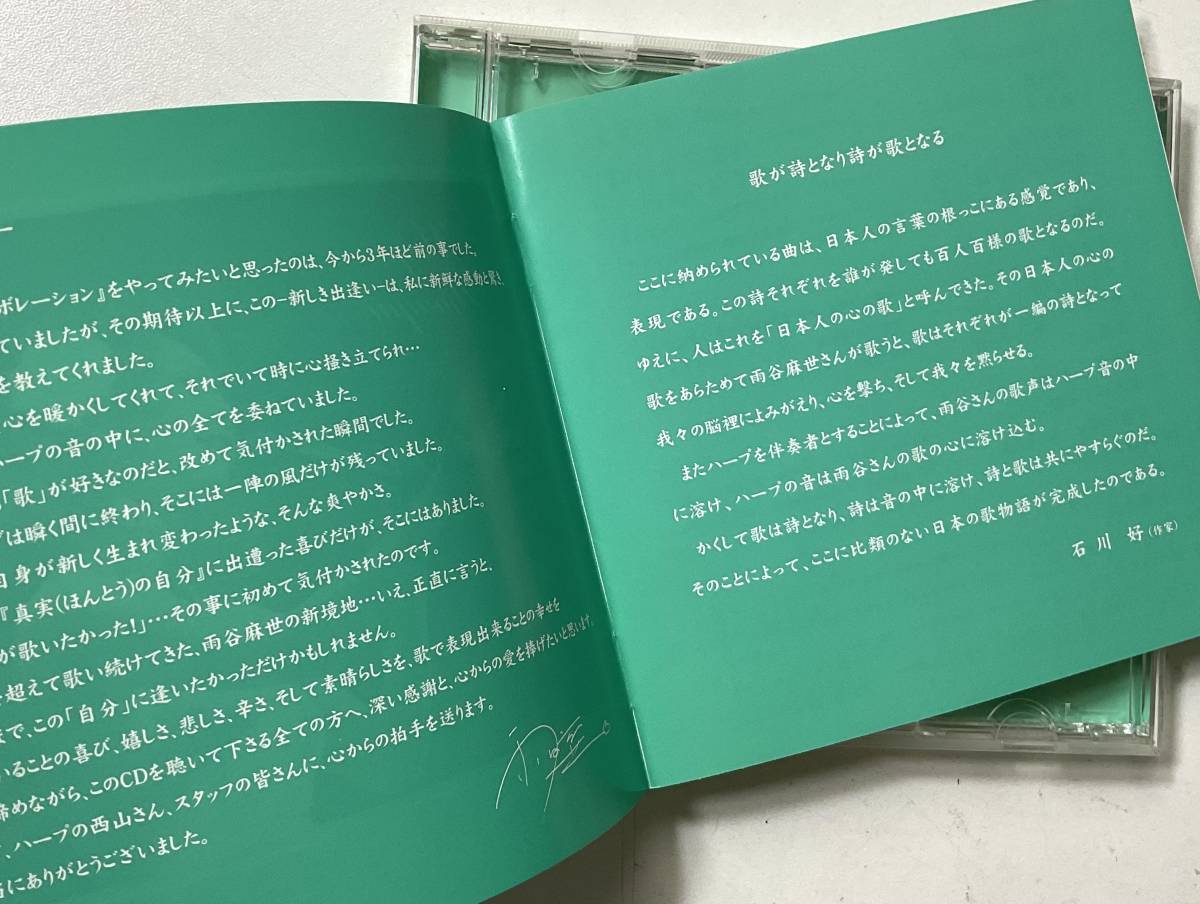 ボレーション』をやってみたいと思ったのは、今から3年ほど前の事でした。
ていましたが、その期待以上に、この−新しき出逢い−は、私に新鮮な感動と驚き、
を教えてくれました。
心を暖かくしてくれて、それでいて時に心掻き立てられ…
ハープの音の中に、心の全てを委ねていました。
「歌」が好きなのだと、改めて気付かされた瞬間でした。
は瞬く間に終わり、そこには一陣の風だけが残っていました。
自身が新しく生まれ変わったような、そんな爽やかさ。
『真実(ほんとう)の自分』に出遭った喜びだけが、そこにはありました。
が歌いたかった!」…その事に初めて気付かされたのです。
を超えて歌い続けてきた、雨谷麻世の新境地…いえ、正直に言うと、
で、この「自分」に逢いたかっただけかもしれません。
いることの喜び、嬉しさ、悲しさ、辛さ、そして素晴らしさを、歌で表現出来ることの幸せを
締めながら、このCDを聴いて下さる全ての方へ、深い感謝と、心からの愛を捧げたいと思います。
、ハープの西山さん、スタッフの皆さんに、心からの拍手を送ります。
にありがとうございました。
歌が詩となり詩が歌となる
ここに納められている曲は、日本人の言葉の根っこにある感覚であり、
表現である。この詩それぞれを誰が発しても百人百様の歌となるのだ。
ゆえに、人はこれを「日本人の心の歌」と呼んできた。その日本人の心の
歌をあらためて雨谷麻世さんが歌うと、歌はそれぞれが一編の詩となって
我々の脳裡によみがえり、心を撃ち、そして我々を黙らせる。
またハープを伴奏者とすることによって、雨谷さんの歌声はハープ音の中
に溶け、ハープの音は雨谷さんの歌の心に溶け込む。
かくして歌は詩となり、詩は音の中に溶け、詩と歌は共にやすらぐのだ。
そのことによって、ここに比類のない日本の歌物語が完成したのである。
石川 好(作家)